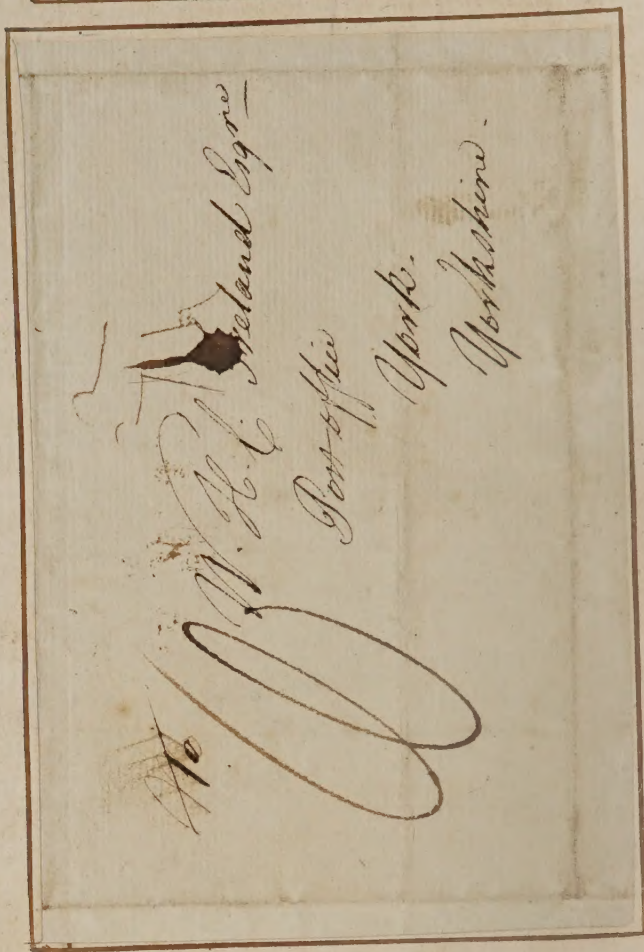 W. H. Ireland Esqre
Post office
York.
Yorkshire.